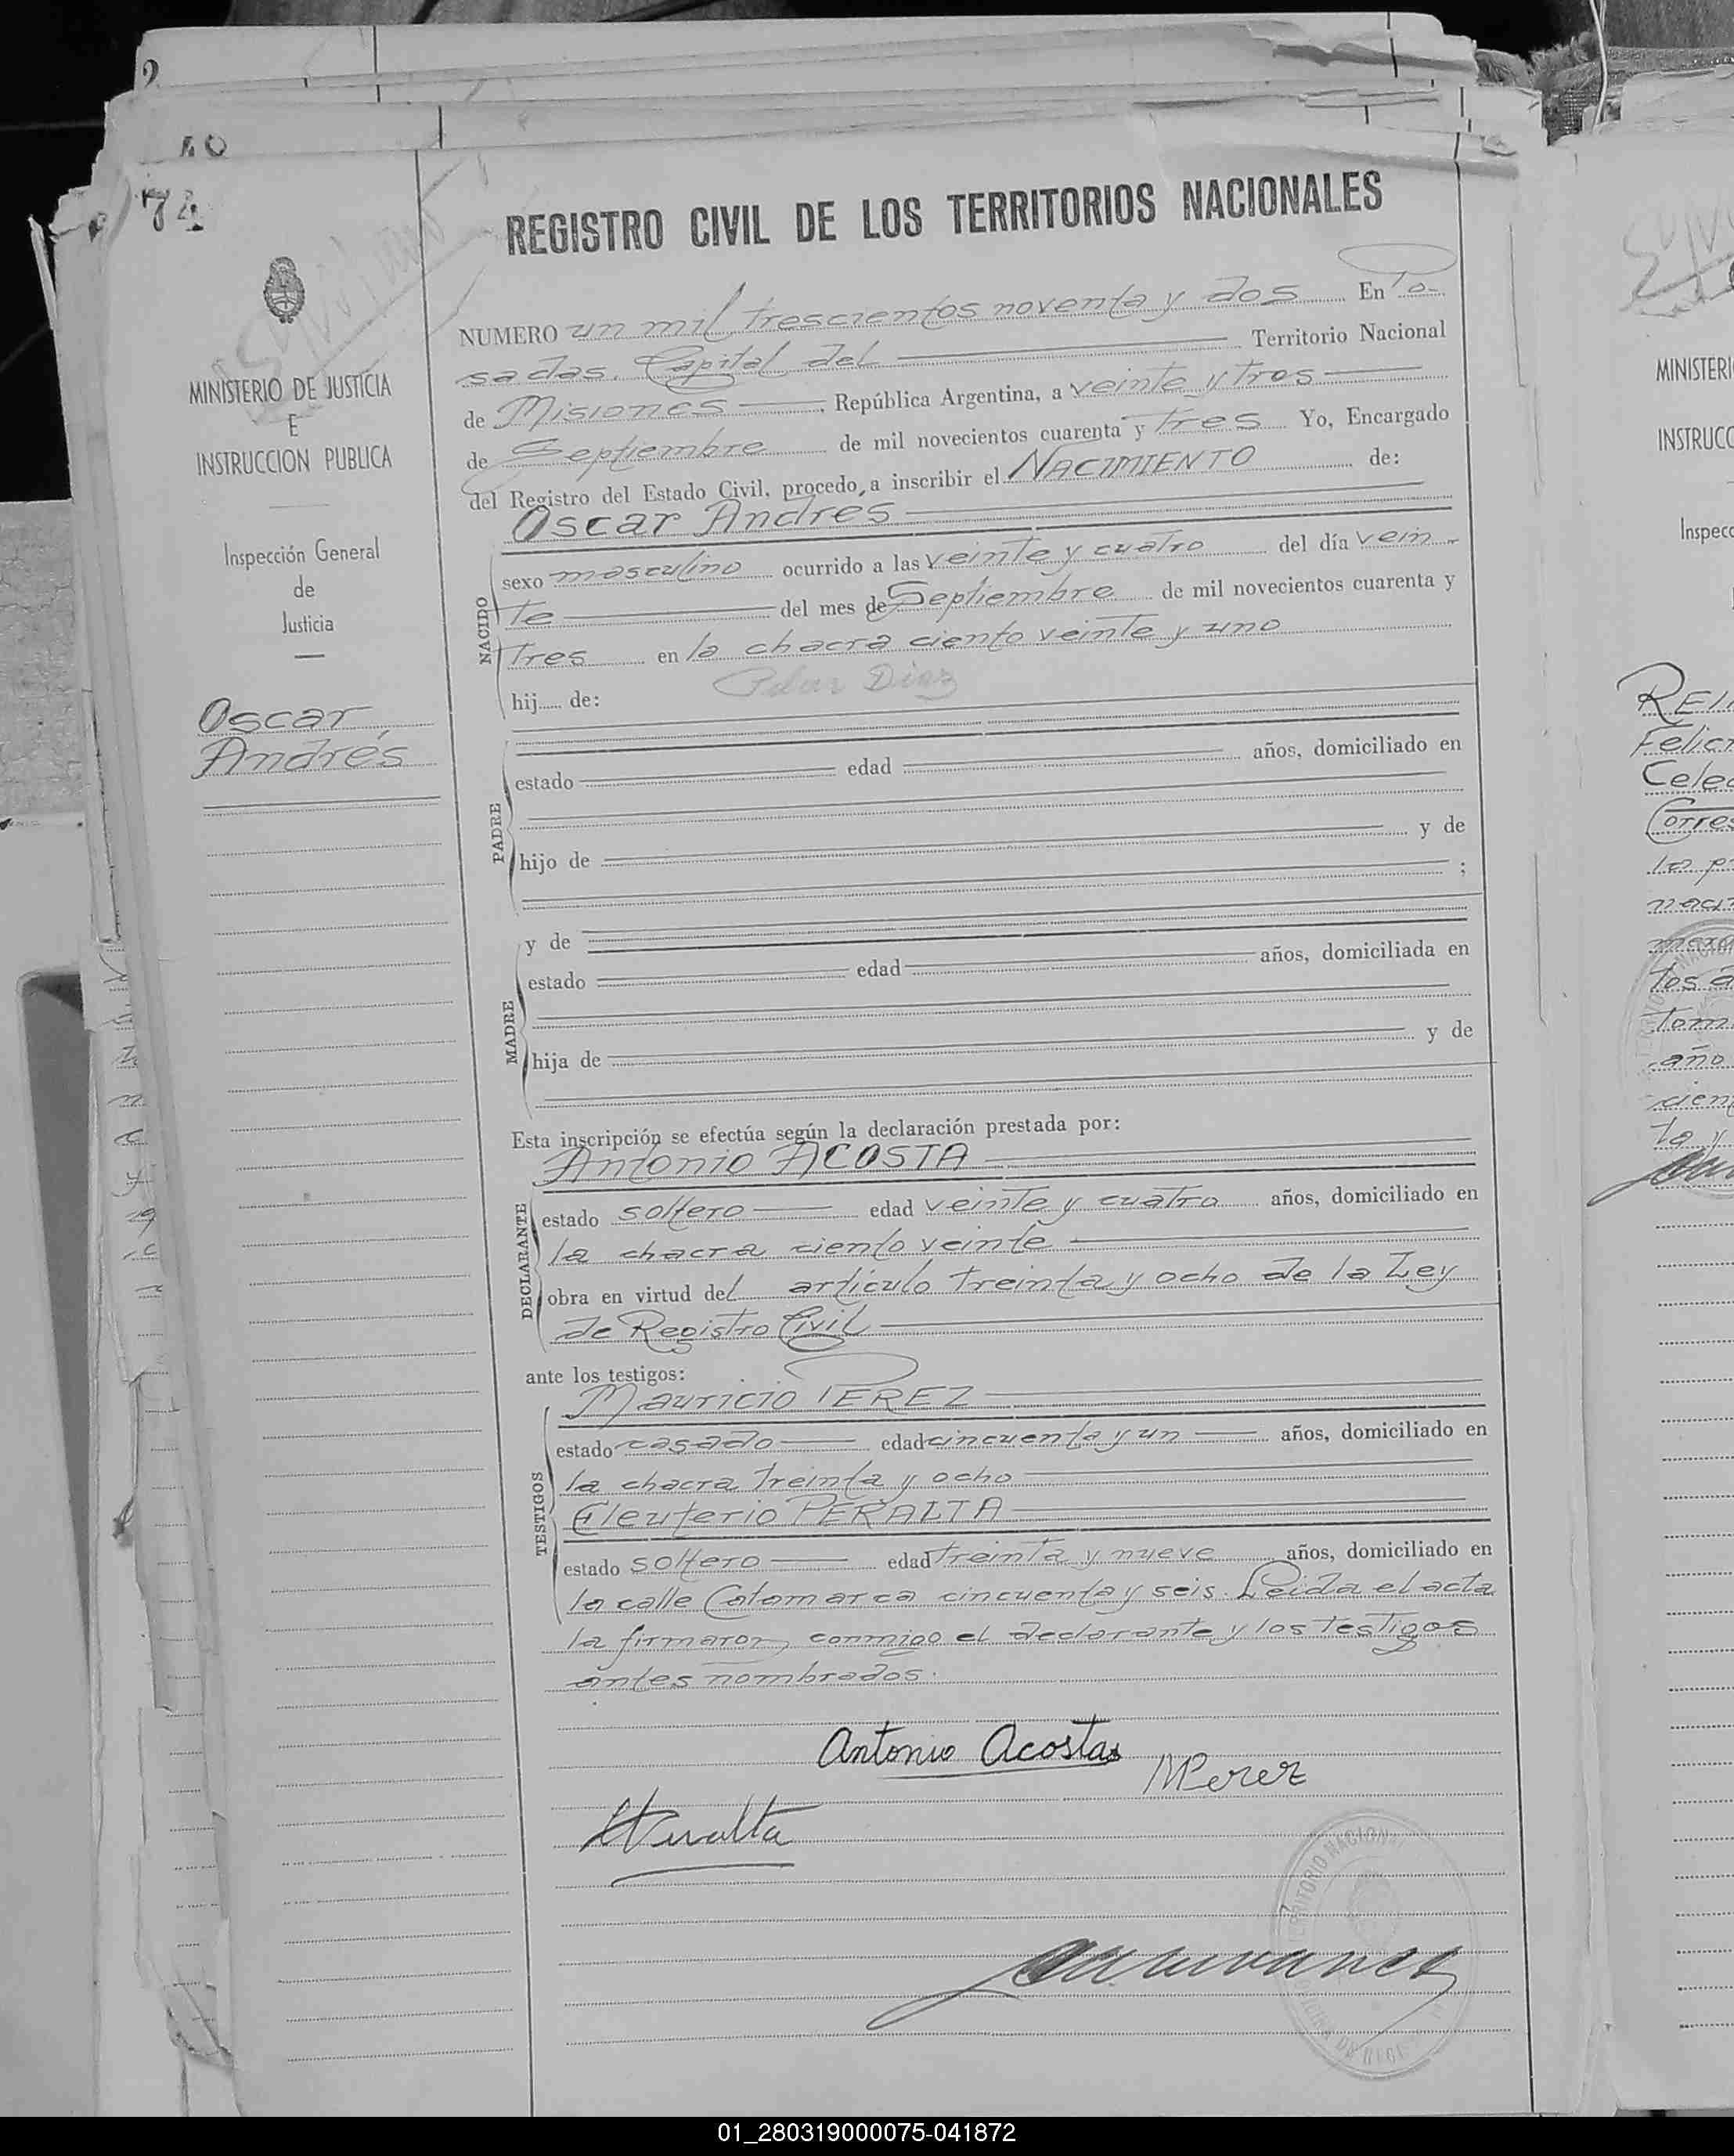 2
40
74
REGISTRO CIVIL DE LOS TERRITORIOS NACIONALES
MINISTERIO DE JUSTICIA
E
INSTRUCCION PUBLICA
Inspección General
de
Justicia
Oscar
Andrés
NUMERO un mil trescientos noventa y dos En Po-
sadas, Capital del Territorio Nacional
de Misiones, República Argentina, a veinte y tres
de Septiembre de mil novecientos cuarenta y tres Yo, Encargado
del Registro del Estado Civil, procedo a inscribir el NACIMIENTO de:
Oscar Andres
NACIDO
sexo masculino ocurrido a las veinte y cuatro del día vein-
te del mes de Septiembre de mil novecientos cuarenta y
tres en la chacra ciento veinte y uno
hij de: Diaz
PADRE
estado edad años, domiciliado en
hijo de y de
;
MADRE
y de
estado edad años, domiciliada en
hija de y de
Esta inscripción se efectúa según la declaración prestada por:
Antonio ACOSTA
DECLARANTE
estado soltero edad veinte y cuatro años, domiciliado en
la chacra ciento veinte
obra en virtud del articulo treinta y ocho de la Ley
de Registro Civil
ante los testigos:
Mauricio PEREZ
TESTIGOS
estado casado edad cincuenta y un años, domiciliado en
la chacra treinta y ocho
Eleuterio PERALTA
estado soltero edad treinta y nueve años, domiciliado en
la calle Catamarca cincuenta y seis. Leida el acta
la firmaron conmigo el declarante y los testigos
antes nombrados.
Antonio Acosta
MPerez
Peralta
MINISTERI
INSTRUCC
Inspecc
01_280319000075-041872